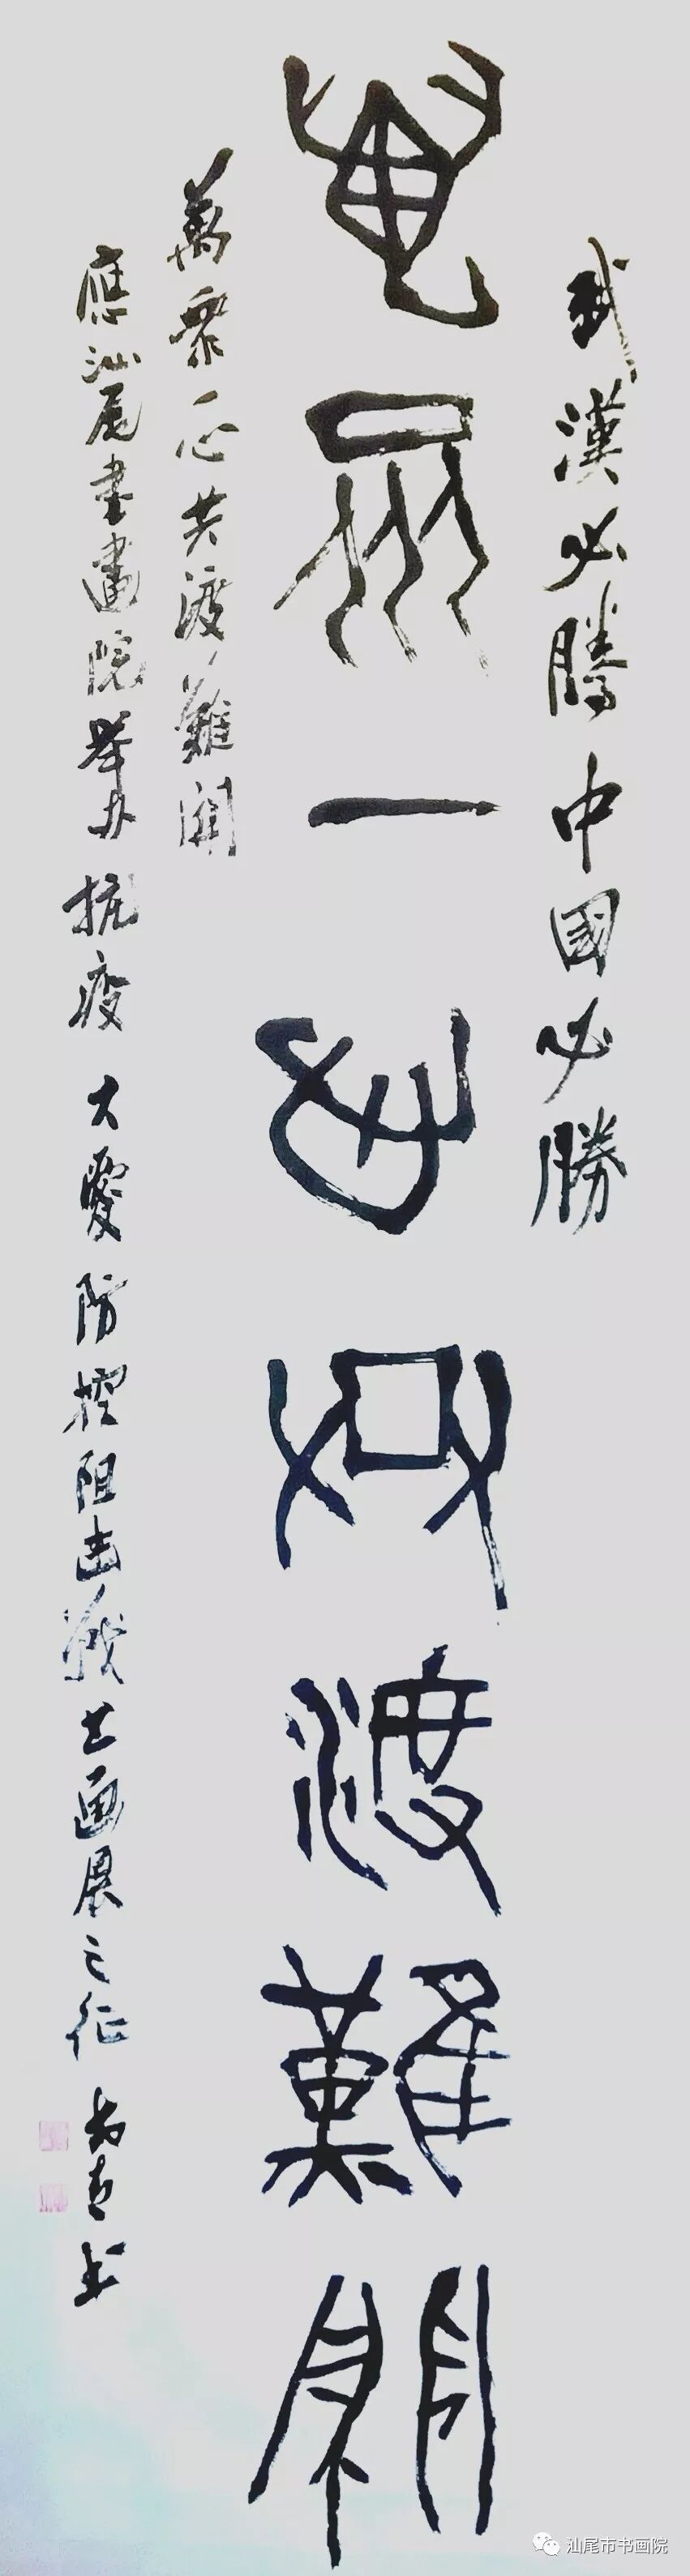 武漢必勝中國必勝
萬眾一心共渡難關
萬眾一心共渡難關
應汕尾書畫院舉办抗疫大愛防控阻击戰书画展之征
书
汕尾市书画院